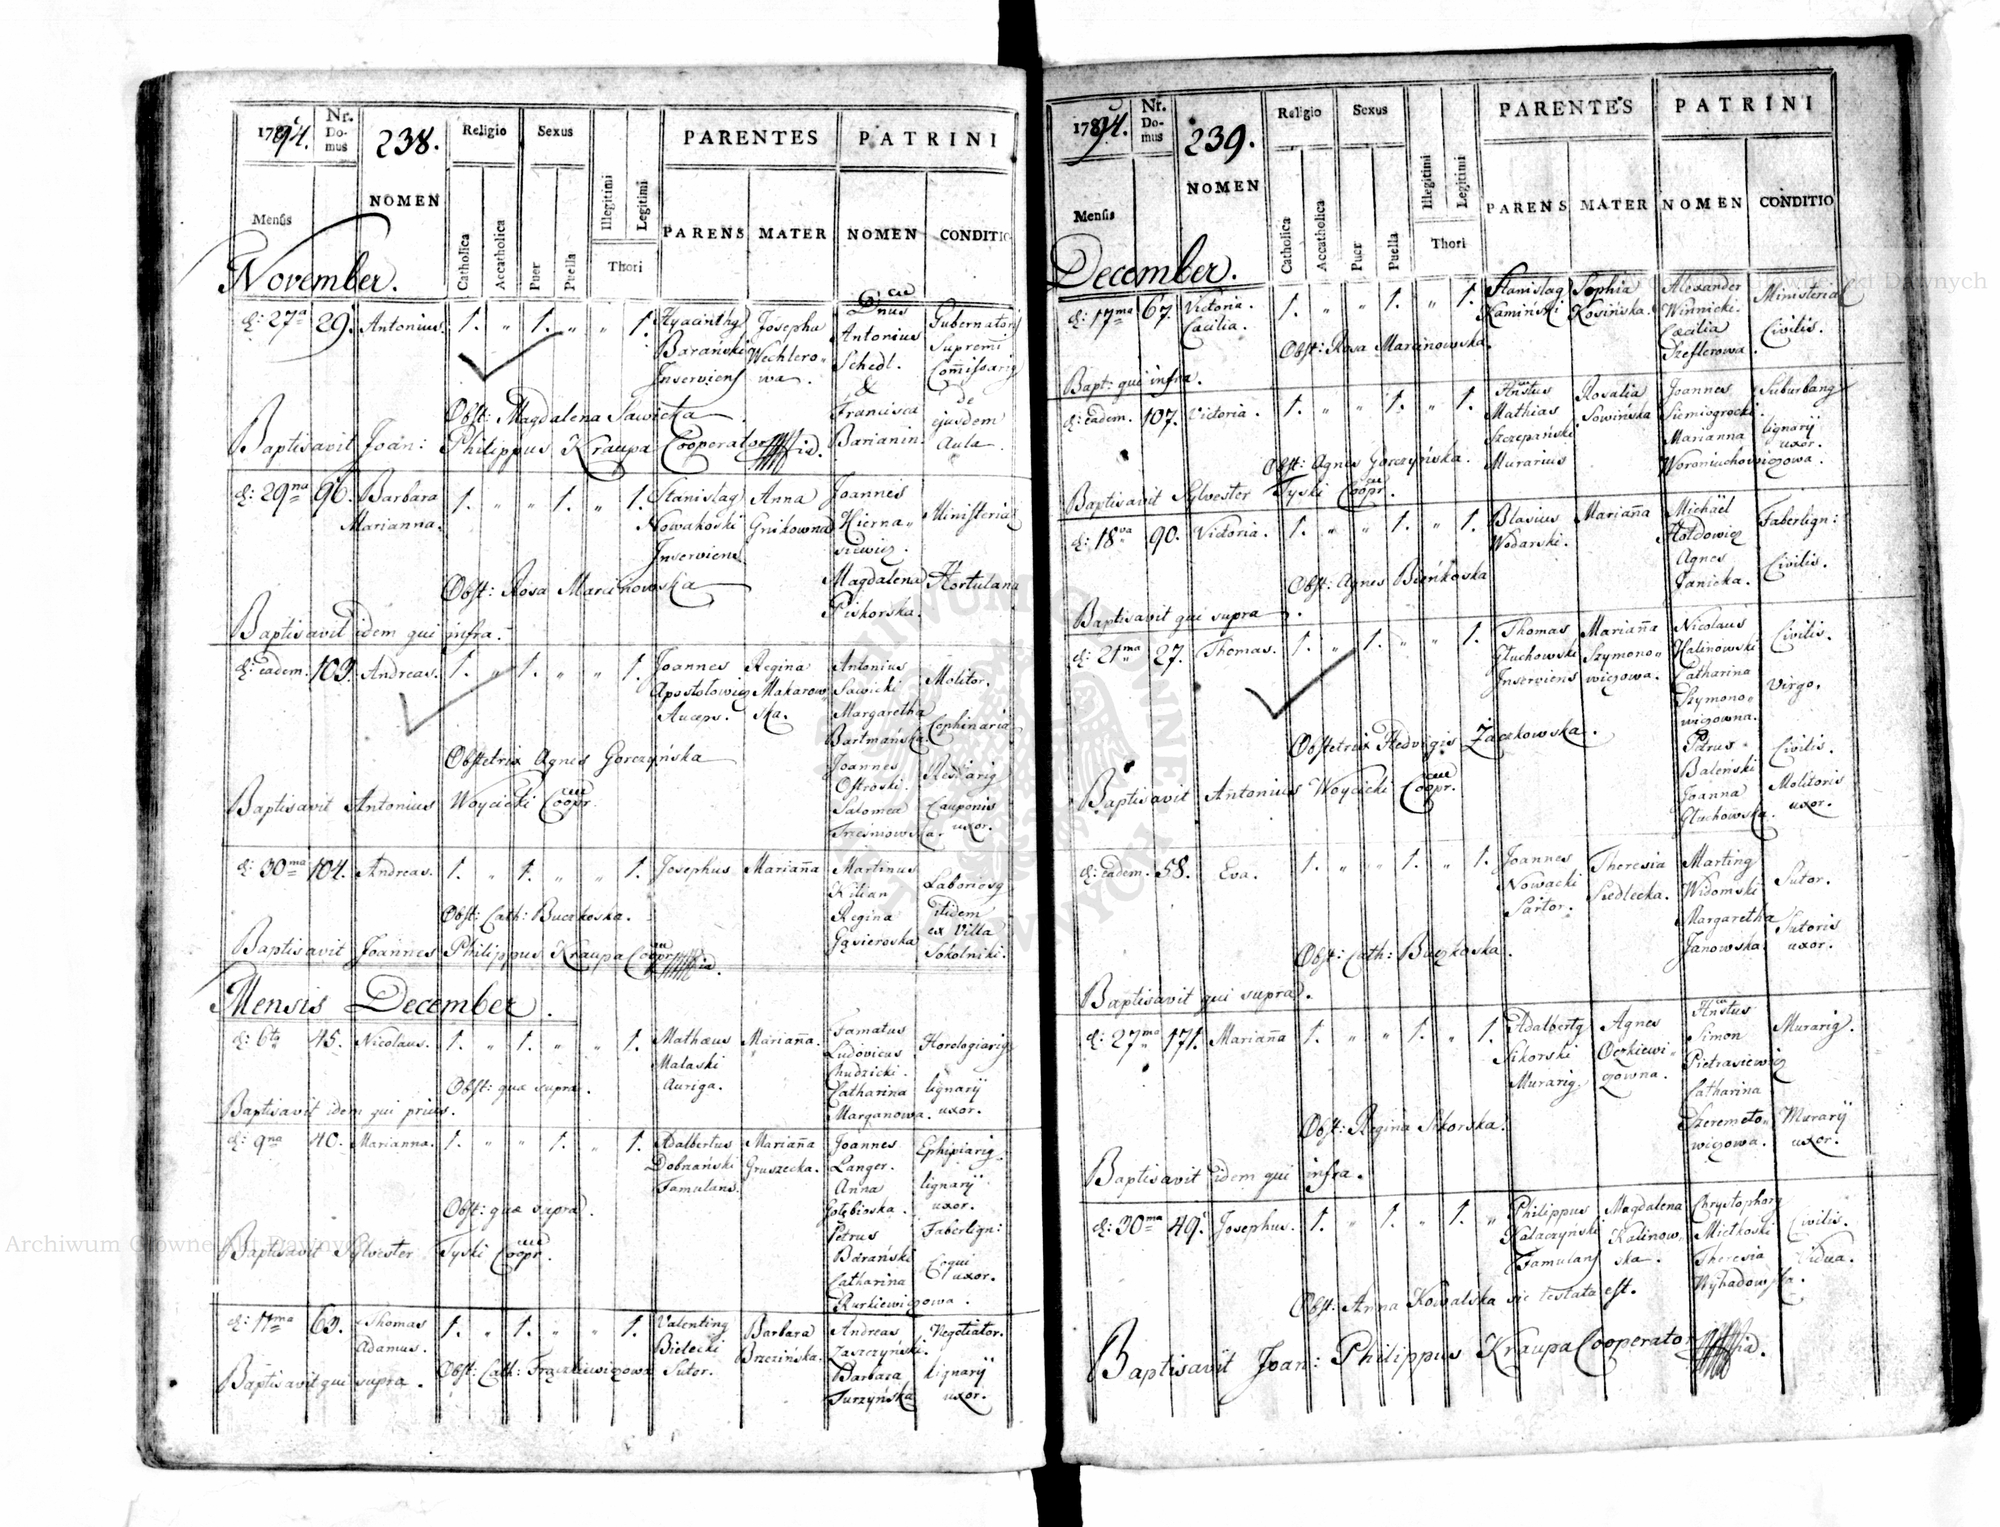 1794.
Nr. Domus
238.
Religio
Sexus
PARENTES
PATRINI
Mensis
NOMEN
Catholica
Accatholica
Puer
Puella
Illegitimi
Legitimi
Thori
PARENS
MATER
NOMEN
CONDITIO
November.
d: 27a 29. Antonius. 1. „ 1. „ „ 1. Hyacinthg Josepha Dnus Gubernatorij
Barański Wechlero„ Antonius Supremi
Inserviens wa. Schedl. Comissarig
& de
Obst: Magdalena Sawicka Francisca ejusdem
Baptisavit Joan: Philippus Kraupa Cooperator Barianin. Aula.
d: 29na 96. Barbara 1. „ „ 1. „ 1. Stanislag Anna Joannes
Marianna. Nowakoski Gnikowna Hierna„ Ministerial
Inserviens siewicz.
Obst: Rosa Marcinowska Magdalena Hortulana
Piskorska.
Baptisavit idem qui infra.
d: eadem. 103. Andreas. 1. „ 1. „ „ 1. Joannes Regina Antonius
Apostołowicz Makarow Sawicki Molitor.
Auceps. ska. Margaretha
Bartmańska. Cophinaria
Obstetrix Agnes Gorczyńska Joannes
Ostroski. Restiarig
Baptisavit Antonius Woycicki Coopr. Salomea Cauponis
Trześniowska. uxor.
d: 30ma 104. Andreas. 1. „ 1. „ „ 1. Josephus Marianna Martinus
Kilian Laboriosg
Obst: Cath: Buczkoska. Regina itidem
Gąsieroska ex Villa
Baptisavit Joannes Philippus Kraupa Coopr Sokolniki.
Mensis December.
d: 6ta 45. Nicolaus. 1. „ 1. „ „ 1. Mathæus Marianna. Famatus Horologiarig
Malaski Ludovicus
Auriga. Chudzicki.
Obst: quæ supra. Catharina lignarij
Baptisavit idem qui prius. Marganowa. uxor.
d: 9na 40. Marianna. 1. „ „ 1. „ 1. Adalbertus Marianna Joannes Ephipiarig
Dobrzański Gruszecka. Langer.
Famulans. Anna lignarij
Obst: quæ supra. Gołębioska. uxor.
Petrus Faberlign:
Baptisavit Sylvester Tyski Coopr. Barański
Catharina Coqui uxor.
Rurkiewiczowa.
d: 17ma 63. Thomas 1. „ 1. „ „ 1. Valenting Barbara Andreas Negotiator.
Adamus. Bielecki Brzezińska. Zaszczyński.
Obst: Cath: Frączkiewiczowa Sutor. Barbara lignarij
Baptisavit qui supra. Turzyńska uxor.
1794.
Nr. Domus
239.
Religio
Sexus
PARENTES
PATRINI
Mensis
NOMEN
Catholica
Accatholica
Puer
Puella
Illegitimi
Legitimi
Thori
PARENS
MATER
NOMEN
CONDITIO
December.
d: 17ma 67. Victoria. 1. „ „ 1. „ 1. Stanislag Sophia Alexander Ministerial
Cæcilia. Kaminski Kosińska. Winnicki.
Obst: Rosa Marcinowska. Cæcilia Civilis.
Szeflerowa.
Bapt: qui infra.
d: eadem. 107. Victoria. 1. „ „ 1. „ 1. Hnstus Rosalia Joannes Suburbang
Mathias Sowińska Siemiogrocki.
Szczepański Marianna lignarij
Obst: Agnes Gorczyńska. Murarius Woroniuchowiczowa. uxor.
Baptisavit Sylvester Tyski Coopr.
d: 18va 90. Victoria. 1. „ „ 1. „ 1. Blasius Marianna Michaël Faberlign:
Wodarski. Hołdowicz
Obst: Agnes Bieńkoska Agnes Civilis.
Janicka.
Baptisavit qui supra.
d: 21ma 27. Thomas. 1. „ 1. „ „ 1. Thomas Marianna Nicolaus Civilis.
Głuchowski Szymono„ Kalinowski
Inserviens wiczowa. Catharina Virgo.
Szymono„
wiczowna.
Obstetrix Hedvigis Zaczkowska. Petrus Civilis.
Baleński
Baptisavit Antonius Woycicki Coopr. Joanna Molitoris
Głuchowska. uxor.
d: eadem. 58. Eva. 1. „ „ 1. „ 1. Joannes Theresia Marting
Nowacki Siedlecka. Widomski Sutor.
Sartor. Margaretha Sutoris
Obst: Cath: Buczkoska. Janowska. uxor.
Baptisavit qui supra.
d: 27ma 171. Marianna 1. „ „ 1. „ 1. Adalbertg Agnes Hnstus
Sikorski Oczkiewi„ Simon Murarig.
Murarig. czowna. Pietrasiewicz
Catharina
Obst: Regina Sikorska. Szeremeto„ Murarij
wiczowa. uxor.
Baptisavit idem qui infra.
d: 30ma 49. Josephus. 1. „ 1. „ 1. „ Philippus Magdalena Chrystophorg
Kalaczyński Kalinow„ Mietkoski Civilis.
Famulans ska. Theresia Vidua.
Obst: Anna Kowalska sic testata est. Wyhadowska.
Baptisavit Joan: Philippus Kraupa Cooperator
Archiwum Główne Akt Dawnych